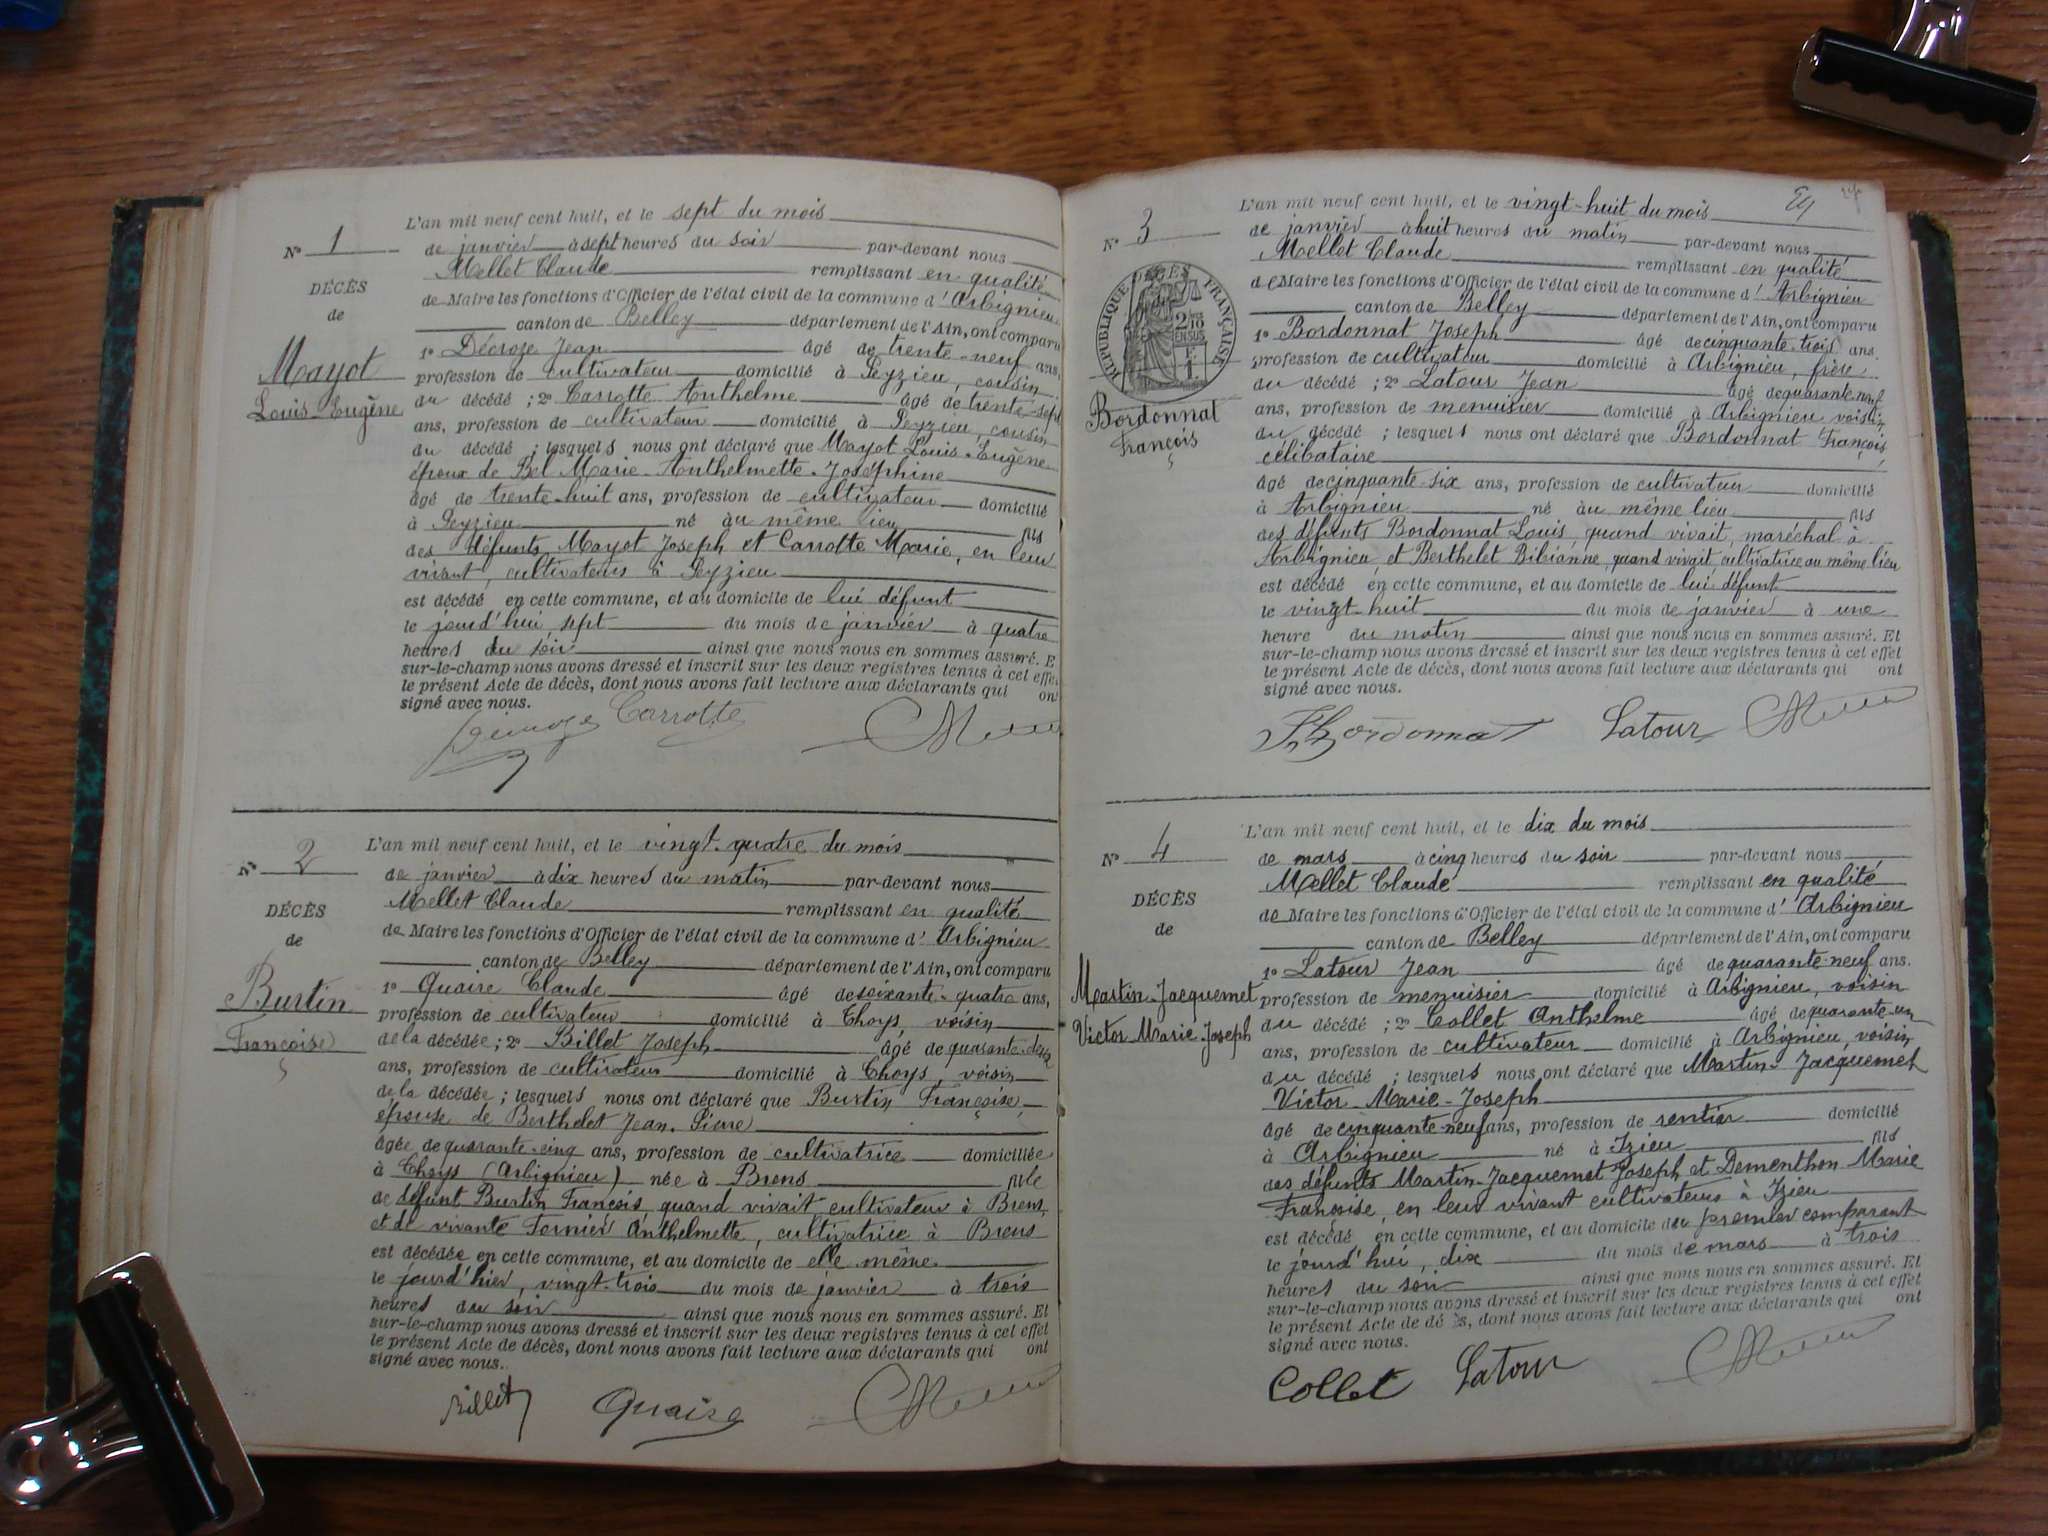 N° 1
DÉCÈS
de
Mayot
Louis-Eugène
L'an mil neuf cent huit, et le sept du mois
de janvier à sept heures du soir par-devant nous
Mellet Claude remplissant en qualité
de Maire les fonctions d'Officier de l'état civil de la commune d' Arbignieu
canton de Belley département de l'Ain, ont comparu
1° Décroze Jean âgé de trente-neuf ans,
profession de cultivateur domicilié à Peyzieu, cousin
du décédé ; 2° Carrotte Anthelme âgé de trente-sept
ans, profession de cultivateur domicilié à Peyzieu, cousin
du décédé ; lesquels nous ont déclaré que Mayot Louis-Eugène
époux de Bel Marie-Anthelmette-Joséphine
âgé de trente-huit ans, profession de cultivateur domicilié
à Peyzieu né au même lieu fils
des défunts Mayot Joseph et Carrotte Marie, en leur
vivant, cultivateurs à Peyzieu
est décédé en cette commune, et au domicile de lui défunt
le jourd'hui sept du mois de janvier à quatre
heures du soir ainsi que nous nous en sommes assuré. E
sur-le-champ nous avons dressé et inscrit sur les deux registres tenus à cet effet
le présent Acte de décès, dont nous avons fait lecture aux déclarants qui on
signé avec nous.
Carrotte
N° 2
DÉCÈS
de
Burtin
Françoise
L'an mil neuf cent huit, et le vingt-quatre du mois
de janvier à dix heures du matin par-devant nous
Mellet Claude remplissant en qualité
de Maire les fonctions d'Officier de l'état civil de la commune d' Arbignieu
canton de Belley département de l'Ain, ont comparu
1° Quaire Claude âgé de soixante-quatre ans,
profession de cultivateur domicilié à Thoys, voisin
de la décédée ; 2° Billet Joseph âgé de quarante-deux
ans, profession de cultivateur domicilié à Thoys, voisin
de la décédée ; lesquels nous ont déclaré que Burtin Françoise,
épouse de Berthelet Jean-Pierre
âgée de quarante-cinq ans, profession de cultivatrice domiciliée
à Thoys (Arbignieu) née à Brens fille
de défunt Burtin François, quand vivait, cultivateur à Brens,
et de vivante Fornier Anthelmette, cultivatrice à Brens
est décédée en cette commune, et au domicile de elle-même
le jourd'hier, vingt-trois du mois de janvier à trois
heures du soir ainsi que nous nous en sommes assuré. Et
sur-le-champ nous avons dressé et inscrit sur les deux registres tenus à cet effet
le présent Acte de décès, dont nous avons fait lecture aux déclarants qui ont
signé avec nous.
Billet Quaire
24
N° 3
DÉCÈS
de
RÉPUBLIQUE FRANÇAISE
2/10 EN SUS
1 F.
Bordonnat
François
L'an mil neuf cent huit, et le vingt-huit du mois
de janvier à huit heures du matin par-devant nous
Mellet Claude remplissant en qualité
de Maire les fonctions d'Officier de l'état civil de la commune d' Arbignieu
canton de Belley département de l'Ain, ont comparu
1° Bordonnat Joseph âgé de cinquante-trois ans
profession de cultivateur domicilié à Arbignieu, frère
du décédé ; 2° Latour Jean âgé de quarante-neuf
ans, profession de menuisier domicilié à Arbignieu voisin
du décédé ; lesquels nous ont déclaré que Bordonnat François,
célibataire
âgé de cinquante-six ans, profession de cultivateur domicilié
à Arbignieu né au même lieu fils
des défunts Bordonnat Louis, quand vivait, maréchal à
Arbignieu, et Berthelet Bibianne, quand vivait, cultivatrice au même lieu
est décédé en cette commune, et au domicile de lui défunt
le vingt-huit du mois de janvier à une
heure du matin ainsi que nous nous en sommes assuré. Et
sur-le-champ nous avons dressé et inscrit sur les deux registres tenus à cet effet
le présent Acte de décès, dont nous avons fait lecture aux déclarants qui ont
signé avec nous.
Bordonnat Latour
N° 4
DÉCÈS
de
Martin-Jacquemet
Victor-Marie-Joseph
L'an mil neuf cent huit, et le dix du mois
de mars à cinq heures du soir par-devant nous
Mellet Claude remplissant en qualité
de Maire les fonctions d'Officier de l'état civil de la commune d' Arbignieu
canton de Belley département de l'Ain, ont comparu
1° Latour Jean âgé de quarante-neuf ans.
profession de menuisier domicilié à Arbignieu, voisin
du décédé ; 2° Collet Anthelme âgé de quarante-un
ans, profession de cultivateur domicilié à Arbignieu, voisin
du décédé ; lesquels nous ont déclaré que Martin-Jacquemet
Victor-Marie-Joseph
âgé de cinquante-neuf ans, profession de rentier domicilié
à Arbignieu né à Izieu fils
des défunts Martin-Jacquemet Joseph et Dementhon Marie
Françoise, en leur vivant cultivateurs à Izieu
est décédé en cette commune, et au domicile du premier comparant
le jourd'hui, dix du mois de mars à trois
heures du soir ainsi que nous nous en sommes assuré. Et
sur-le-champ nous avons dressé et inscrit sur les deux registres tenus à cet effet
le présent Acte de décès, dont nous avons fait lecture aux déclarants qui ont
signé avec nous.
Collet Latour